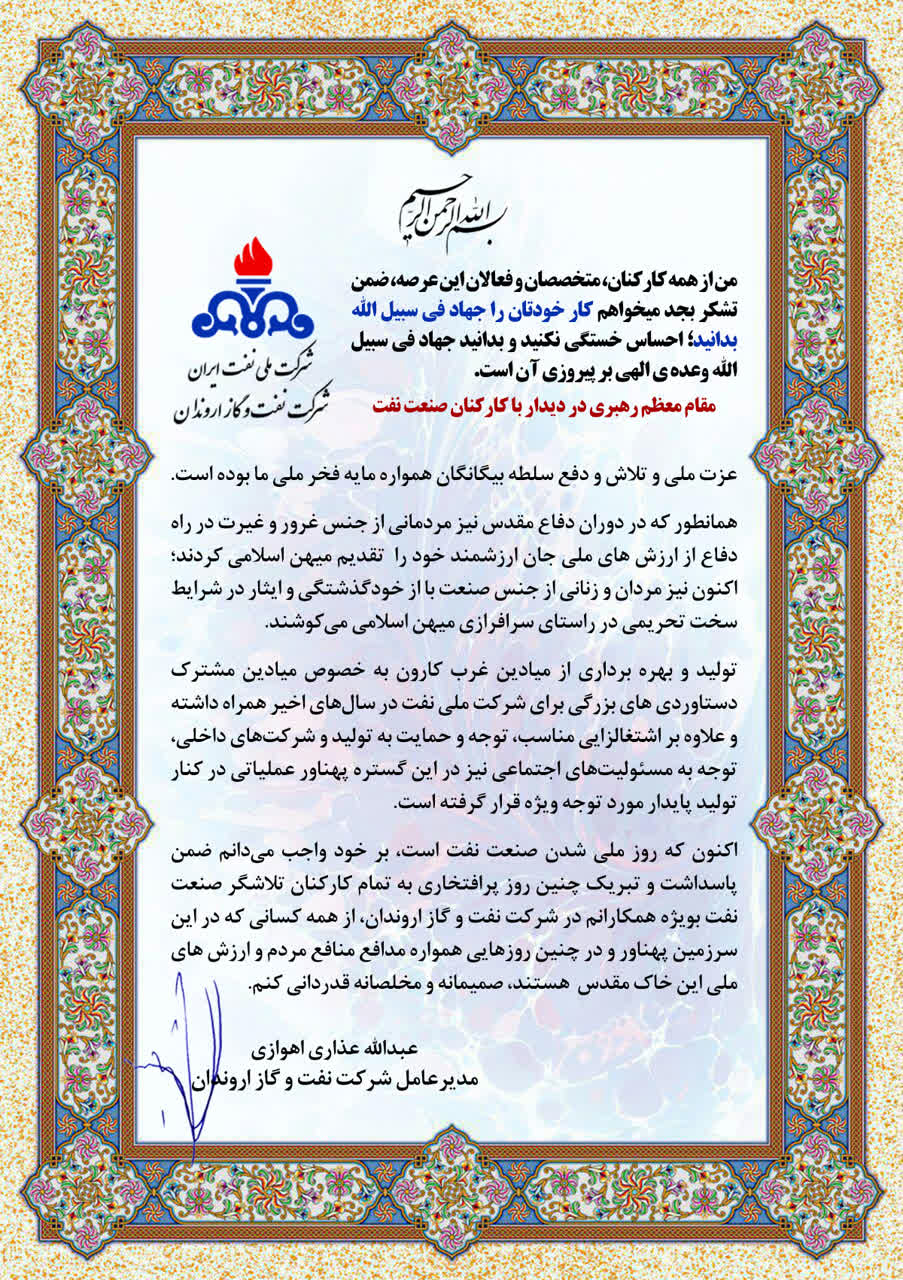 بسم الله الرحمن الرحیم
من از همه کارکنان، متخصصان و فعالان این عرصه، ضمن
تشکر بجد میخواهم کار خودتان را جهاد فی سبیل الله
بدانید؛ احساس خستگی نکنید و بدانید جهاد فی سبیل
الله وعده ی الهی بر پیروزی آن است.
مقام معظم رهبری در دیدار با کارکنان صنعت نفت
شرکت ملی نفت ایران
شرکت نفت و گاز اروندان
عزت ملی و تلاش و دفع سلطه بیگانگان همواره مایه فخر ملی ما بوده است.
همانطور که در دوران دفاع مقدس نیز مردمانی از جنس غرور و غیرت در راه
دفاع از ارزش های ملی جان ارزشمند خود را تقدیم میهن اسلامی کردند؛
اکنون نیز مردان و زنانی از جنس صنعت با از خودگذشتگی و ایثار در شرایط
سخت تحریمی در راستای سرافرازی میهن اسلامی می‌کوشند.
تولید و بهره برداری از میادین غرب کارون به خصوص میادین مشترک
دستاوردی های بزرگی برای شرکت ملی نفت در سال‌های اخیر همراه داشته
و علاوه بر اشتغالزایی مناسب، توجه و حمایت به تولید و شرکت‌های داخلی،
توجه به مسئولیت‌های اجتماعی نیز در این گستره پهناور عملیاتی در کنار
تولید پایدار مورد توجه ویژه قرار گرفته است.
اکنون که روز ملی شدن صنعت نفت است، بر خود واجب می‌دانم ضمن
پاسداشت و تبریک چنین روز پرافتخاری به تمام کارکنان تلاشگر صنعت
نفت بویژه همکارانم در شرکت نفت و گاز اروندان، از همه کسانی که در این
سرزمین پهناور و در چنین روزهایی همواره مدافع منافع مردم و ارزش های
ملی این خاک مقدس هستند، صمیمانه و مخلصانه قدردانی کنم.
عبدالله عذاری اهوازی
مدیرعامل شرکت نفت و گاز اروندان